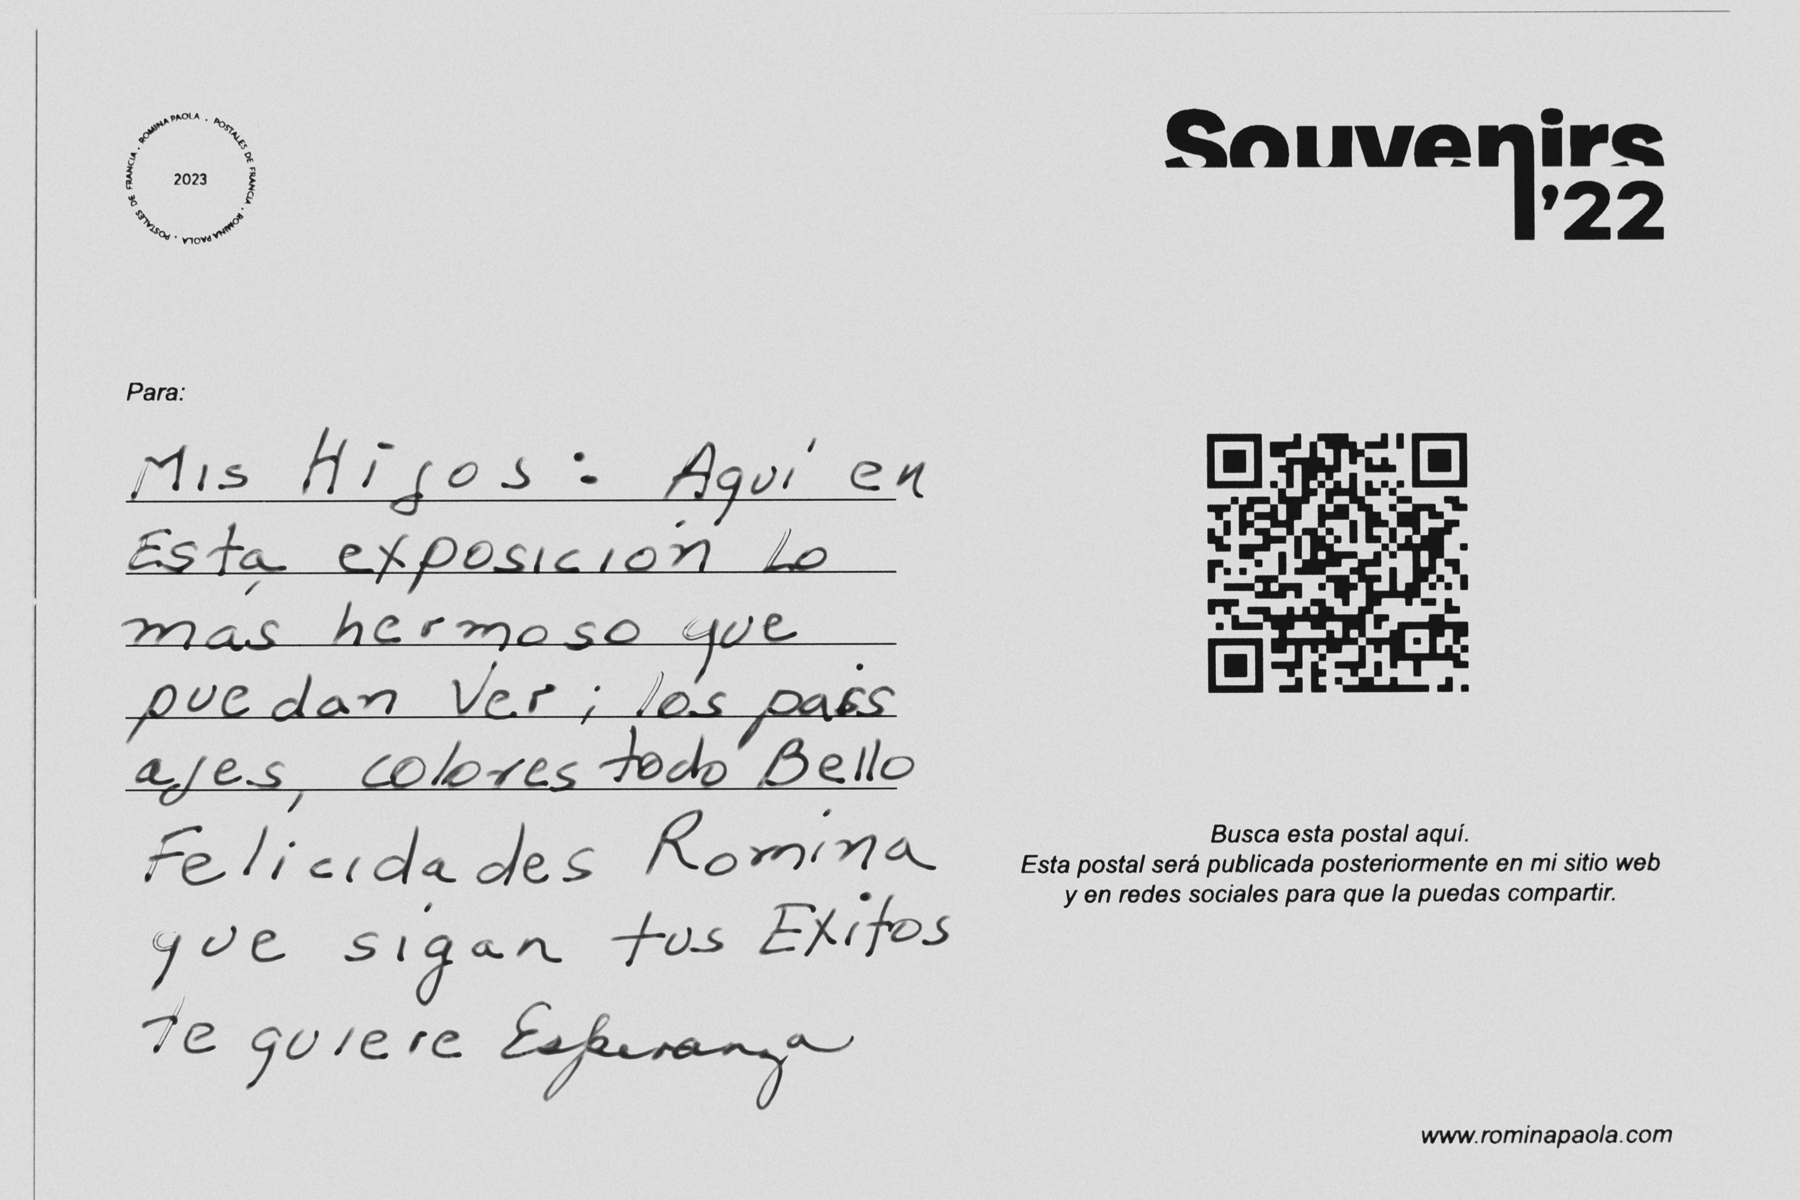 ROMINA PAOLA . POSTALES DE FRANCIA . ROMINA PAOLA . POSTALES DE FRANCIA .
2023
Souvenirs
'22
Para:
Mis Hijos: Aquí en
Esta exposición Lo
más hermoso que
puedan Ver; los pais
ajes, colores todo Bello
Felicidades Romina
que sigan tus Exitos
te quiere Esperanza
Busca esta postal aquí.
Esta postal será publicada posteriormente en mi sitio web
y en redes sociales para que la puedas compartir.
www.rominapaola.com